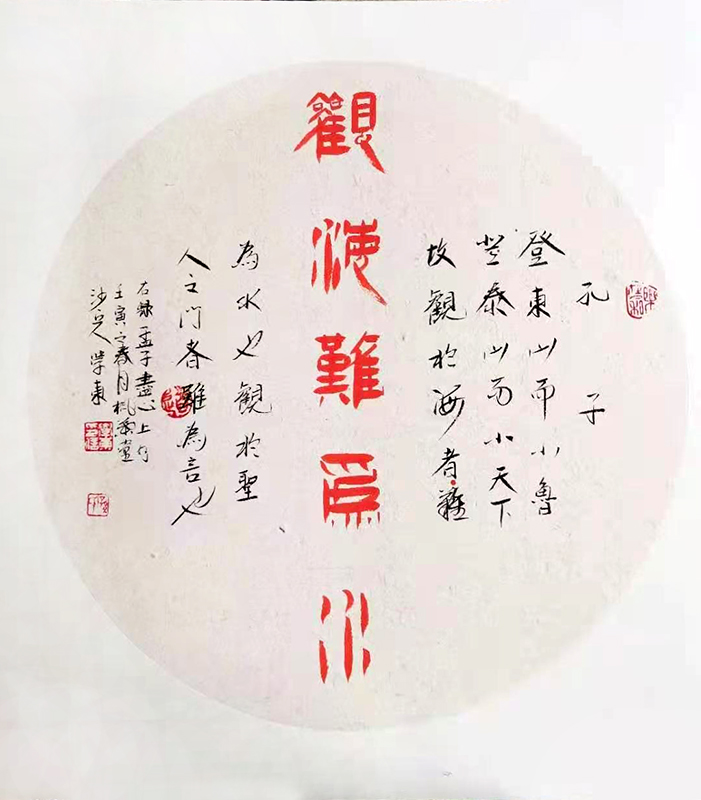 孔子
登東山而小魯
登泰山而小天下
故觀於海者難
觀海難為水
為水也觀於聖
人之門者難為言也
右錄孟子盡心上句
壬寅之春月
學東